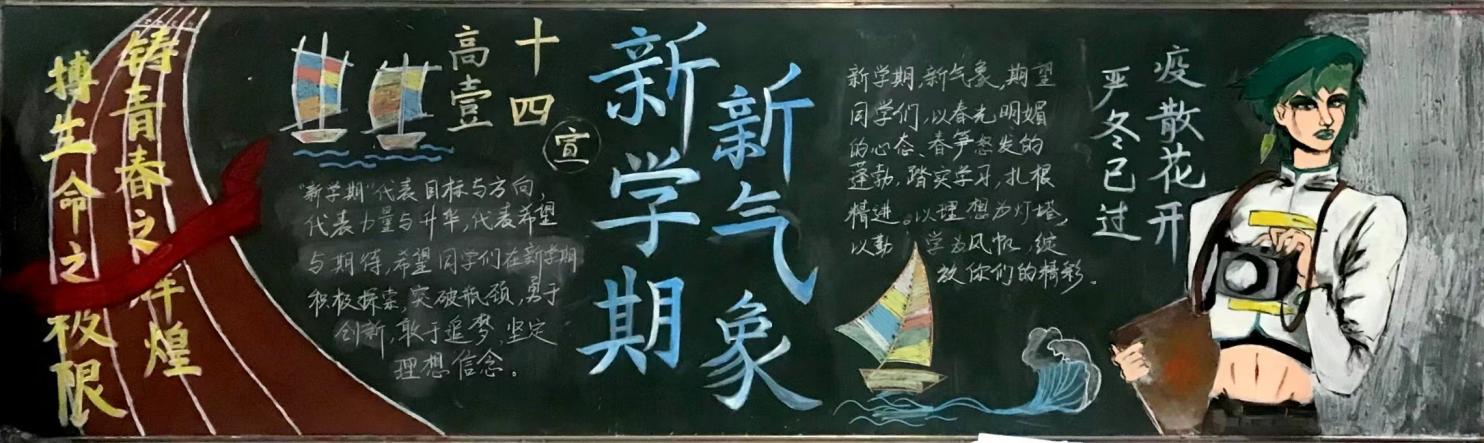 铸青春之辉煌
搏生命之极限
高壹
十四
宣
"新学期"代表目标与方向,
代表力量与升华,代表希望
与期待,希望同学们在新学期
积极探索,突破瓶颈,勇于
创新,敢于追梦,坚定
理想信念。
新学期
新气象
新学期,新气象,期望
同学们,以春光明媚
的心态、春笋怒发的
蓬勃,踏实学习,扎根
精进。以理想为灯塔,
以勤 学为风帆,绽
放你们的精彩。
严冬已过
疫散花开